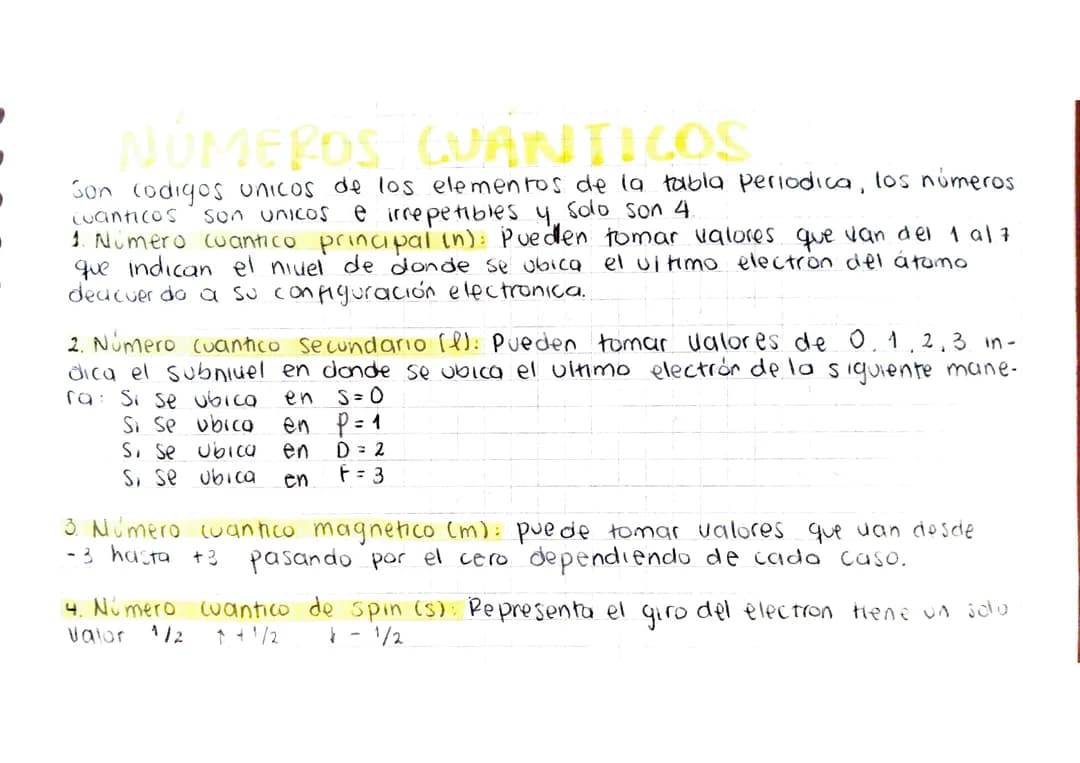 NÚMEROS CUÁNTICOS
Son codigos unicos de los elementos de la tabla periodica, los números
cuanticos son unicos e irrepetibles y solo son 4
1. Número cuantico principal (n): Pueden tomar valores que van del 1 al 7
que indican el nivel de donde se ubica el ultimo electrón del átomo
deacuerdo a su configuración electronica.
2. Número cuantico secundario (l): Pueden tomar valores de 0, 1, 2, 3 in-
dica el subnivel en donde se ubica el ultimo electrón de la siguiente mane-
ra: Si se ubica en S = 0
Si se ubica en P = 1
Si se ubica en D = 2
Si se ubica en F = 3
3. Número cuantico magnetico (m): puede tomar valores que van desde
-3 hasta +3 pasando por el cero dependiendo de cada caso.
4. Número cuantico de spin (s): Representa el giro del electron tiene un solo
valor 1/2 ↑ + 1/2 ↓ - 1/2